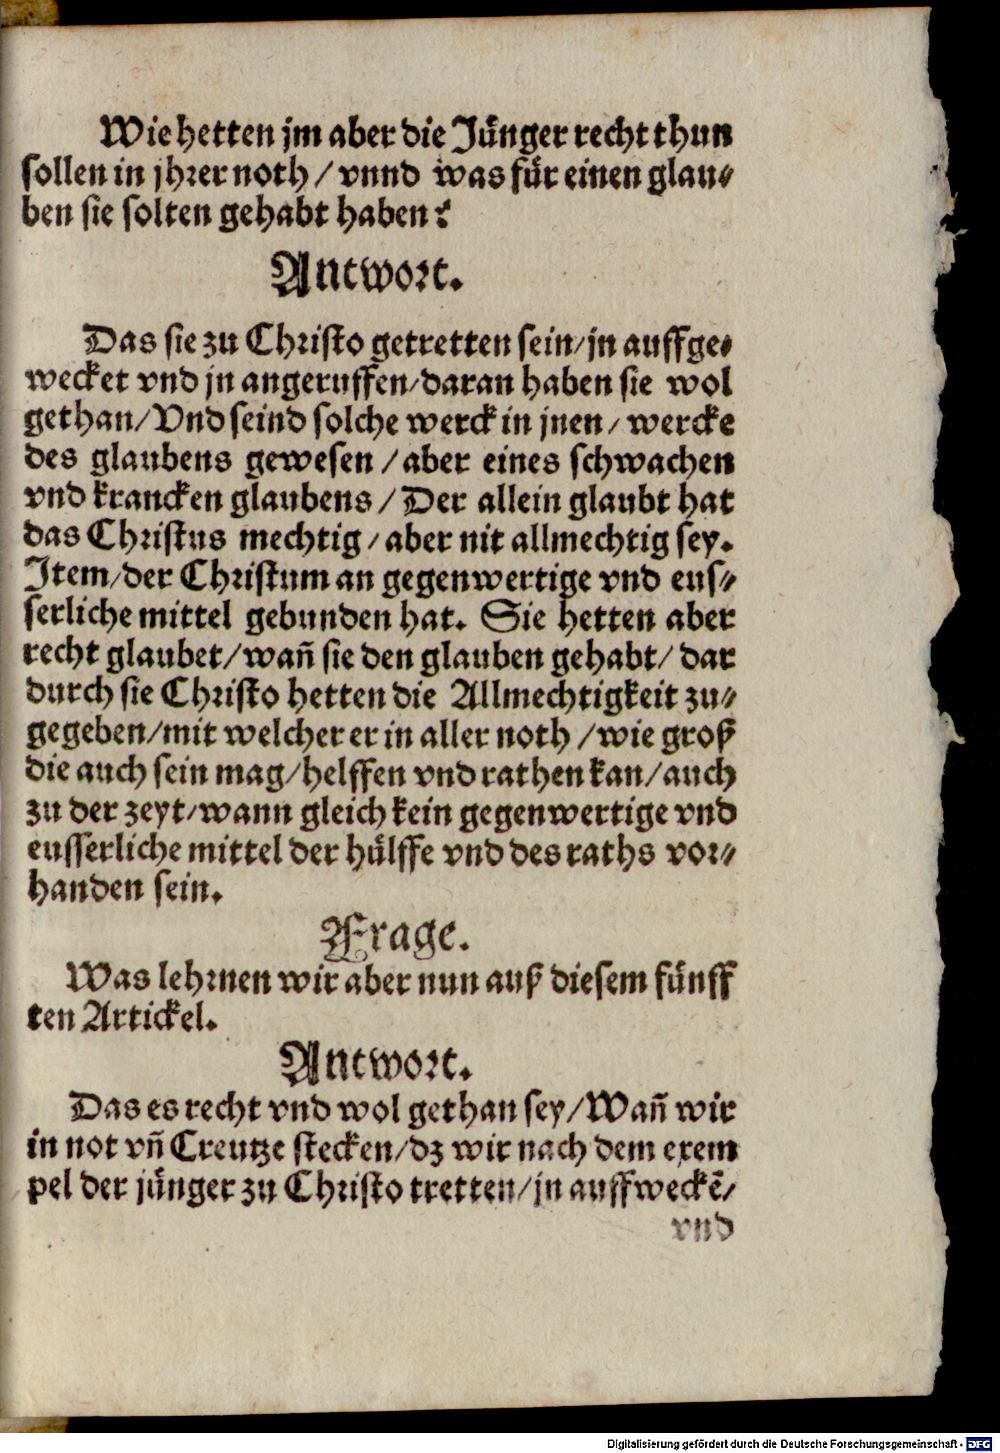 Wie hetten jm aber die Jünger recht thun
sollen in jhrer noth / vnnd was für einen glau⸗
ben sie solten gehabt haben?
Antwort.
Das sie zu Christo getretten sein/jn auffge⸗
wecket vnd jn angeruffen/daran haben sie wol
gethan/Vnd seind solche werck in jnen/ wercke
des glaubens gewesen /aber eines schwachen
vnd krancken glaubens/ Der allein glaubt hat
das Christus mechtig /aber nit allmechtig sey.
Item/der Christum an gegenwertige vnd eus⸗
serliche mittel gebunden hat. Sie hetten aber
recht glaubet/wañ sie den glauben gehabt/ dar
durch sie Christo hetten die Allmechtigkeit zu⸗
gegeben/mit welcher er in aller noth /wie groß
die auch sein mag/helffen vnd rathen kan/auch
zu der zeyt/wann gleich kein gegenwertige vnd
eusserliche mittel der hülffe vnd des raths vor⸗
handen sein.
Frage.
Was lehrnen wir aber nun auß diesem fünff
ten Artickel.
Antwort.
Das es recht vnd wol gethan sey/Wañ wir
in not vñ Creutze stecken/dz wir nach dem exem
pel der jünger zu Christo tretten/jn auffweckẽ/
vnd
Digitalisierung gefördert durch die Deutsche Forschungsgemeinschaft - DFG